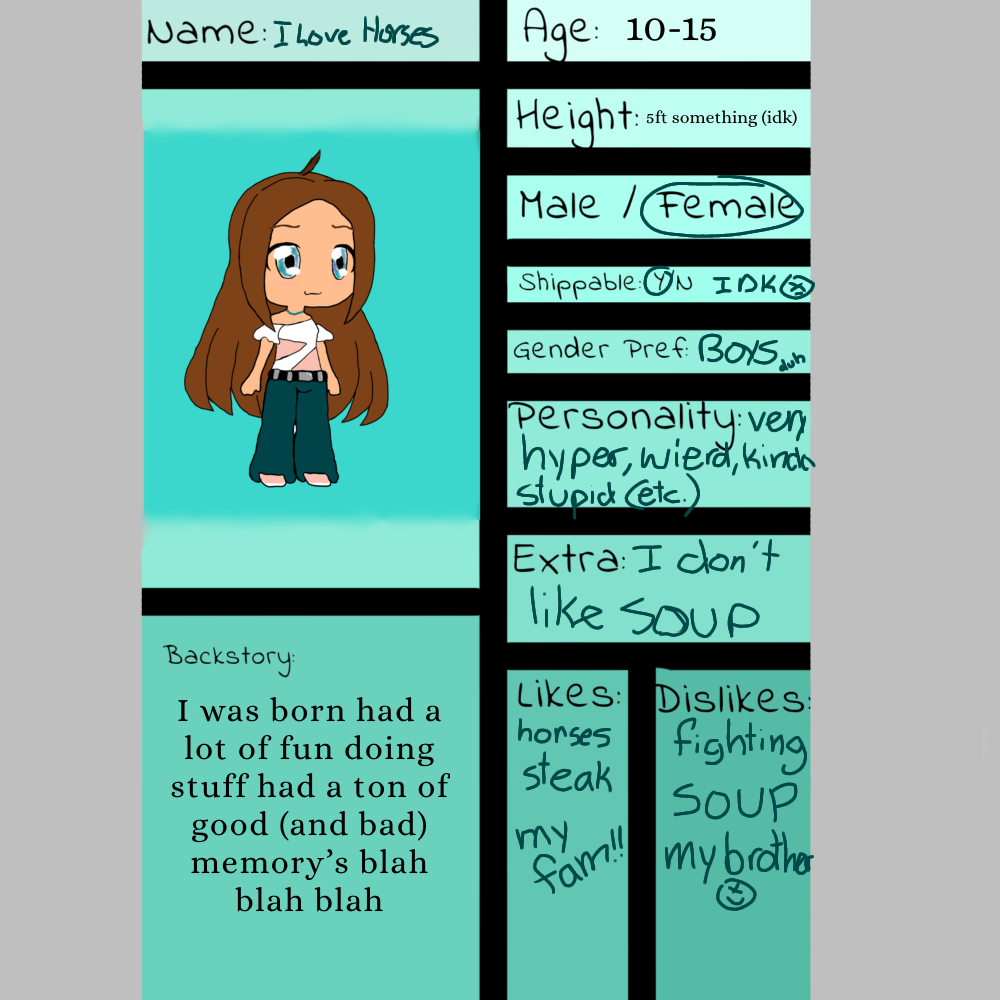 Name: I Love Horses
Age: 10-15
Height: 5ft something (idk)
Male / Female
Shippable: Y/N IDK
Gender Pref: BOYS duh
Personality: very
hyper, wierd, kinda
stupid (etc.)
Extra: I don't
like SOUP
Backstory:
I was born had a
lot of fun doing
stuff had a ton of
good (and bad)
memory's blah
blah blah
Likes:
horses
steak
my
fam!!
Dislikes:
fighting
SOUP
my brother